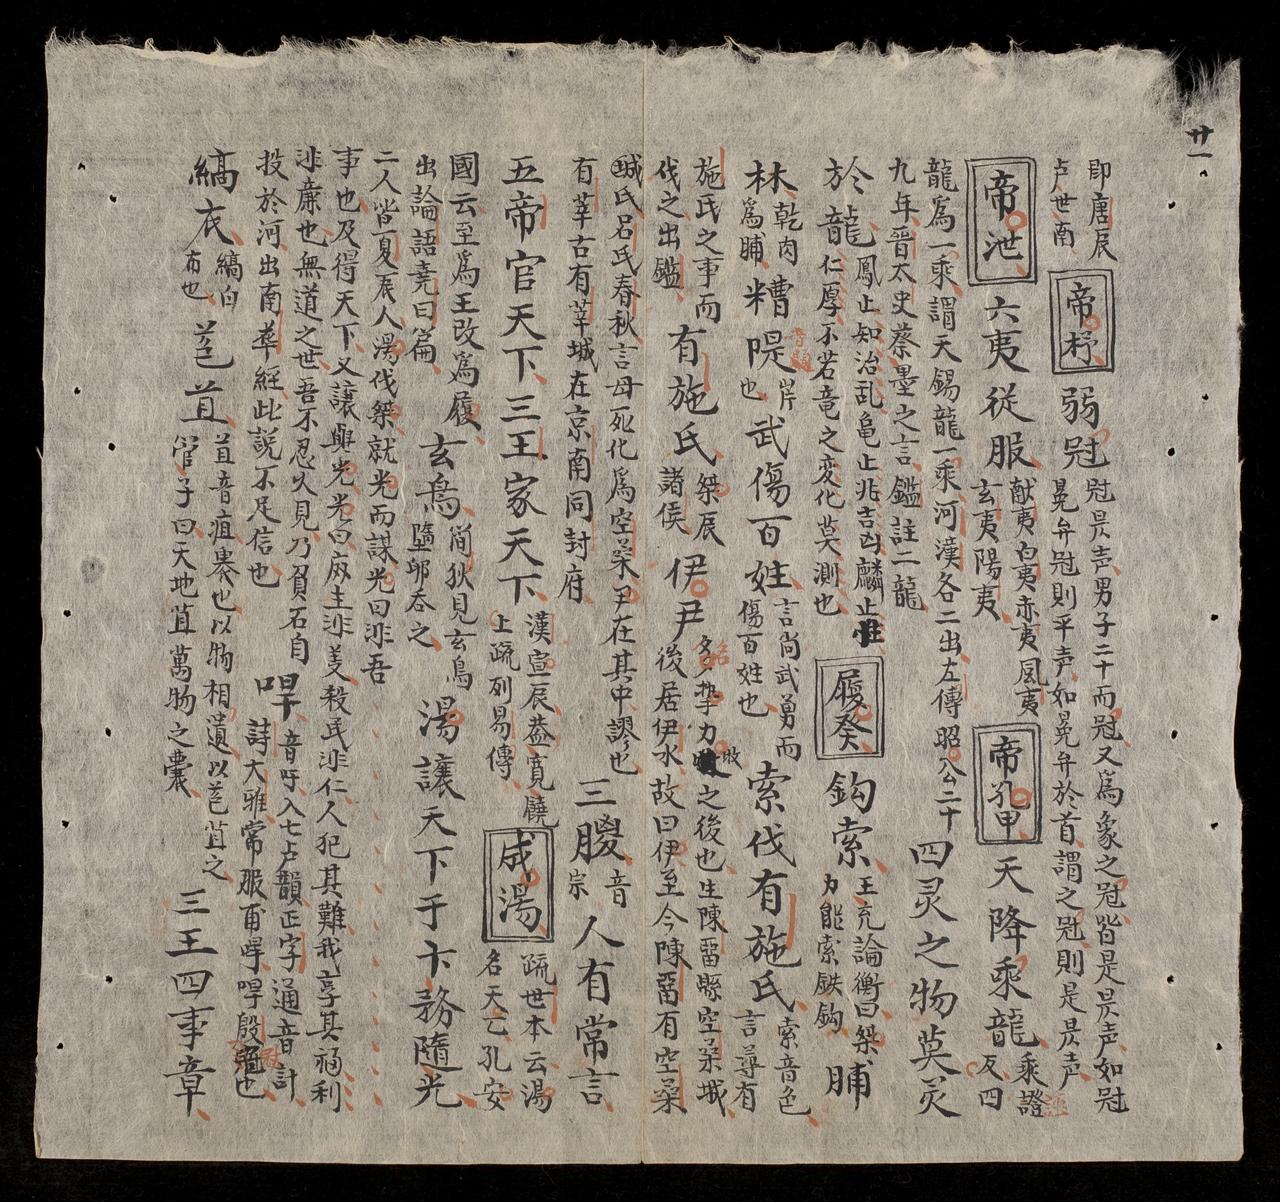 廿一
即唐辰
卢世南
帝杼
弱冠
冠去声男子二十而冠又為衆之冠皆是去声如冠
冕弁冠則平声如冕弁於首謂之冠則是去声
帝泄
六夷従服
献夷白夷赤夷風夷
玄夷陽夷
帝孔甲
天降乘龍
乘證
反四
龍為一乘謂天錫龍一乘河漢各二出左傳昭公二十
九年晉太史蔡墨之言鑑註二龍
四灵之物莫灵
於龍
鳳止知治乱亀止兆吉凶麟止
仁厚不若竜之変化莫測也
履癸
鈎索
王充論衡曰桀
力能索鉄鈎
脯
林
乾肉
為脯
糟隄
岸
也
武傷百姓
言尚武勇而
傷百姓也
索伐有施氏
索音色
言尋有
施氏之事而
伐之出鑑
有施氏
桀辰
諸侯
伊尹
名摯力牧之後也生陳留縣空桑城
後居伊水故曰伊至今陳留有空桑
城氏名氏春秋言母死化為空桑尹在其中謬也
有莘古有莘城在京南同封府
三朡
音
宗
人有常言
五帝官天下三王家天下
漢宣辰蓋寬饒
上疏列易傳
成湯
疏世本云湯
名天乙孔安
國云至為王改為履
出論語堯曰篇
玄鳥
簡狄見玄鳥
墮卵吞之
湯讓天下于卞務隨光
二人皆夏辰人湯伐桀就光而謀光曰非吾
事也及得天下又讓與光光曰廃主非義殺民非仁人犯其難我享其福利
非廉也無道之世吾不忍久見乃負石自
投於河出南華經此説不足信也
哻
音吁入七卢韻正字通音計
詩大雅常服黼哻哻殷冠也
縞衣
縞白
布也
苞苴
苴音疽褁也以物相遺以苞苴之
管子曰天地苴萬物之橐
三王四事章